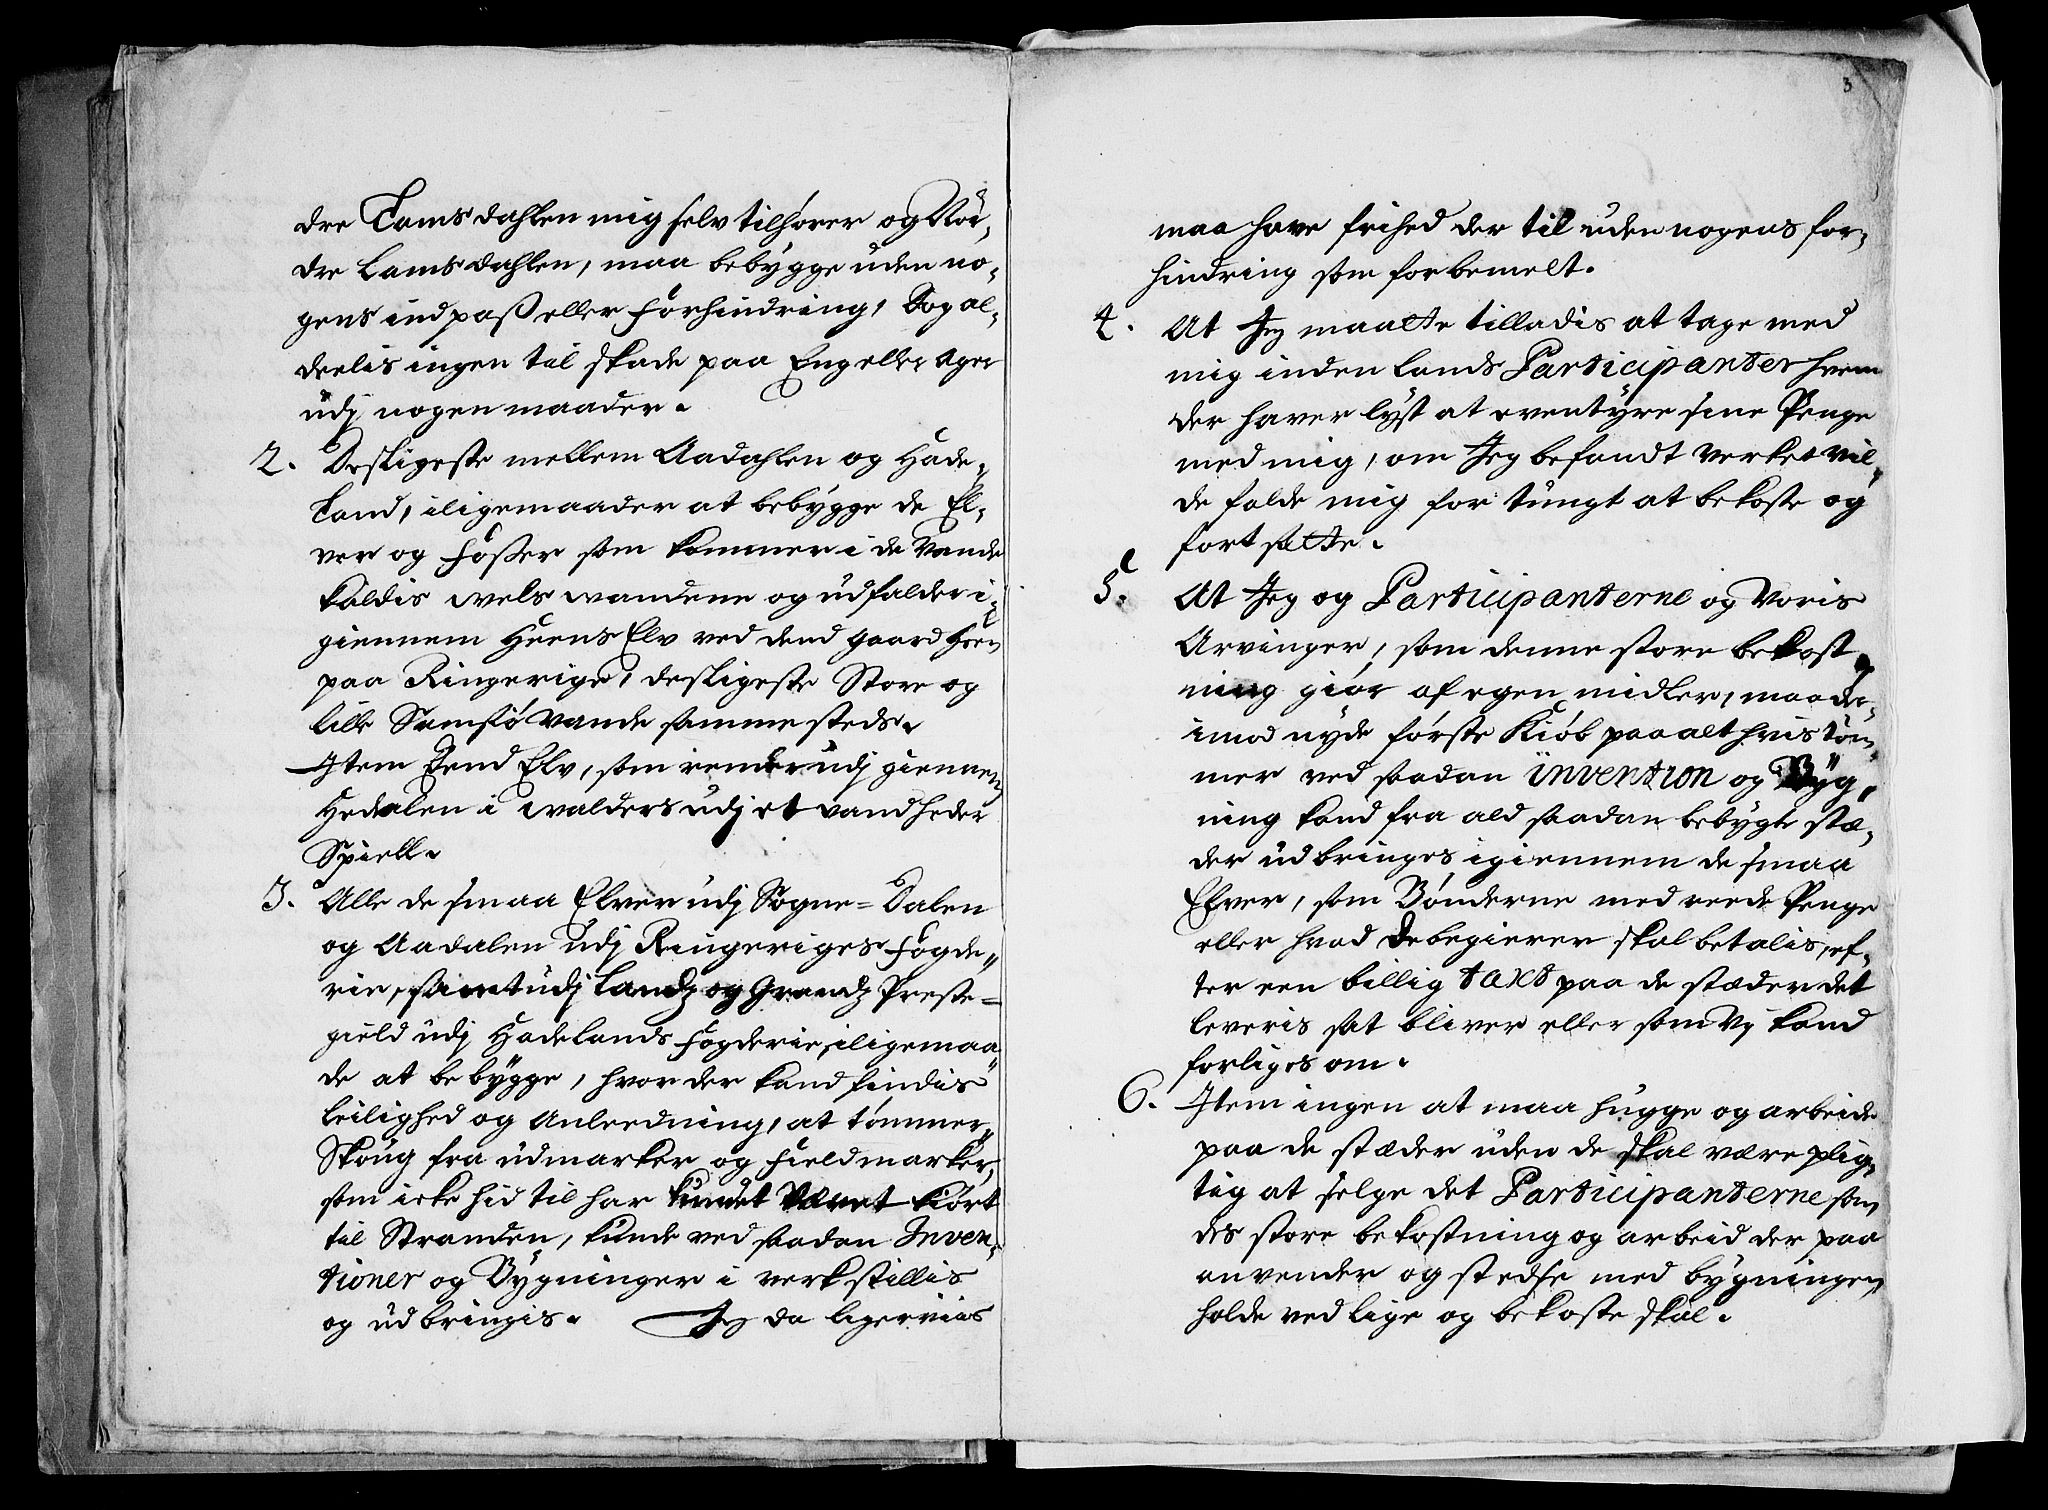 dre Lamsdahlen mig selv tilhører og Nör,
dre Lamsdahlen, maa bebÿgge uden no,
gens indpaß eller Forhindring, Dog al,
deelis ingen til skade paa Eng eller Ager
udj nogen maader.
2. Desligeste mellem Aadahlen og Hade,
land, iligemaader at bebÿgge de El,
ver og Foßer som kommer i de Vande
kaldis wels wandene og udfalder i,
giennem Heens Elv ved dend gaard Heen
paa Ringerige, desligeste Store og
lille Samsiö Vande samme steds.
Item Dend Elv, som render udj giennem
Hedalen i walders udj et vand heder
Spirell.
3. Alle de smaa Elver udj Sogne=Dalen
og Aadalen udj Ringeriges Fogde,,
rie, samt udj Landz og Grandz Preste=
gield udj Hadelands Fogderie, iligemaa
de at bebÿgge, hvor der kand findis
leilighed og Anleedning, at tømmer,,
Skoug fra udmarker og Fieldmarker,
som icke hid til har kundet Været kiört
til Stranden, kunde ved saadan Inven,
tioner og Bÿgninger i verk stillis
og udbringis. Jeg da ligerviis
3
maa have frihed der til uden nogens for,
hindring som forbemelt.
4. At Jeg maatte tilladis at tage med
mig inden lands Participanter hvem
der haver lÿst at eventÿre sine Penge
med mig, om Jeg befandt Verket vil,
de falde mig for tungt at bekoste og
fort sætte.
5. At Jeg og Participanterne og Voris
Arvinger, som denne store bekost,
ning giör af egen midler, maa der,
imod nÿde förste Kiöb paa alt hvis töm,
mer ved saadan invention og Bÿg,
ning kand fra ald saadan bebÿgte stæ,
der udbringes igiennem de smaa
Elver, som Bönderne med reede Penge
eller hvad de begierer skal betalis, ef,
ter een billig taxt paa de stæder det
leveris sat bliver eller som Vj kand
forliges om.
6. Item ingen at maa hugge og arbeide
paa de stæder uden de skal være plig,
tig at selge det Participanterne som
des store bekostning og arbeid der paa
anvender og stedse med bÿgningen
holde ved lige og bekoste skal.